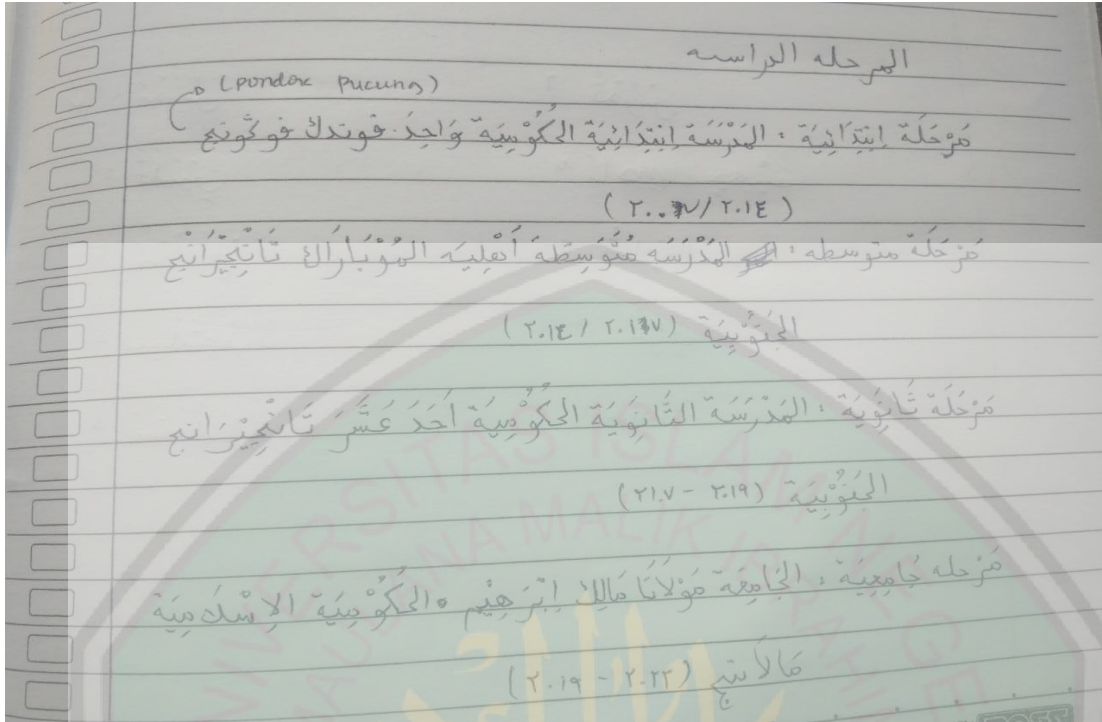 المرحله الدراسه
(Pondok Pucung)
مَرْحَلَة اِبْتِدَائِيَة : المَدْرَسَة اِبْتِدَائِيَة الحُكُوْمِيَة وَاحِدَ. فوندك فوچونج
(٢٠١٤/٢٠٠٧)
مَرْحَلَة متوسطه : المَدْرَسَه مُتَوَسِطَة أَهْلِيَه المُوْبَارَاك تَانْجِيْرَانْج
الجَنُوْبِيَة (٢٠١٧ / ٢٠١٤)
مَرْحَلَة ثَانِوِيَة : المَدْرَسَة الثَّانِوِيَة الحُكُوْمِيَة اَحَدَ عَشَرَ تَانْجِيْرَانج
الجَنُوْبِيَة (٢٠١٩ - ٢١٠٧)
مَرْحله جَامِعِيَة : الجَامِعَة مَوْلَانَا مَالِك اِبْرَهِيْم الحُكُوْمِيَة الاِسْلَامِيَة
مَالَانج (٢٠٢٣ - ٢٠١٩)
UNIVERSITAS ISLAM NEGE
MAULANA MALIK IBRAHI